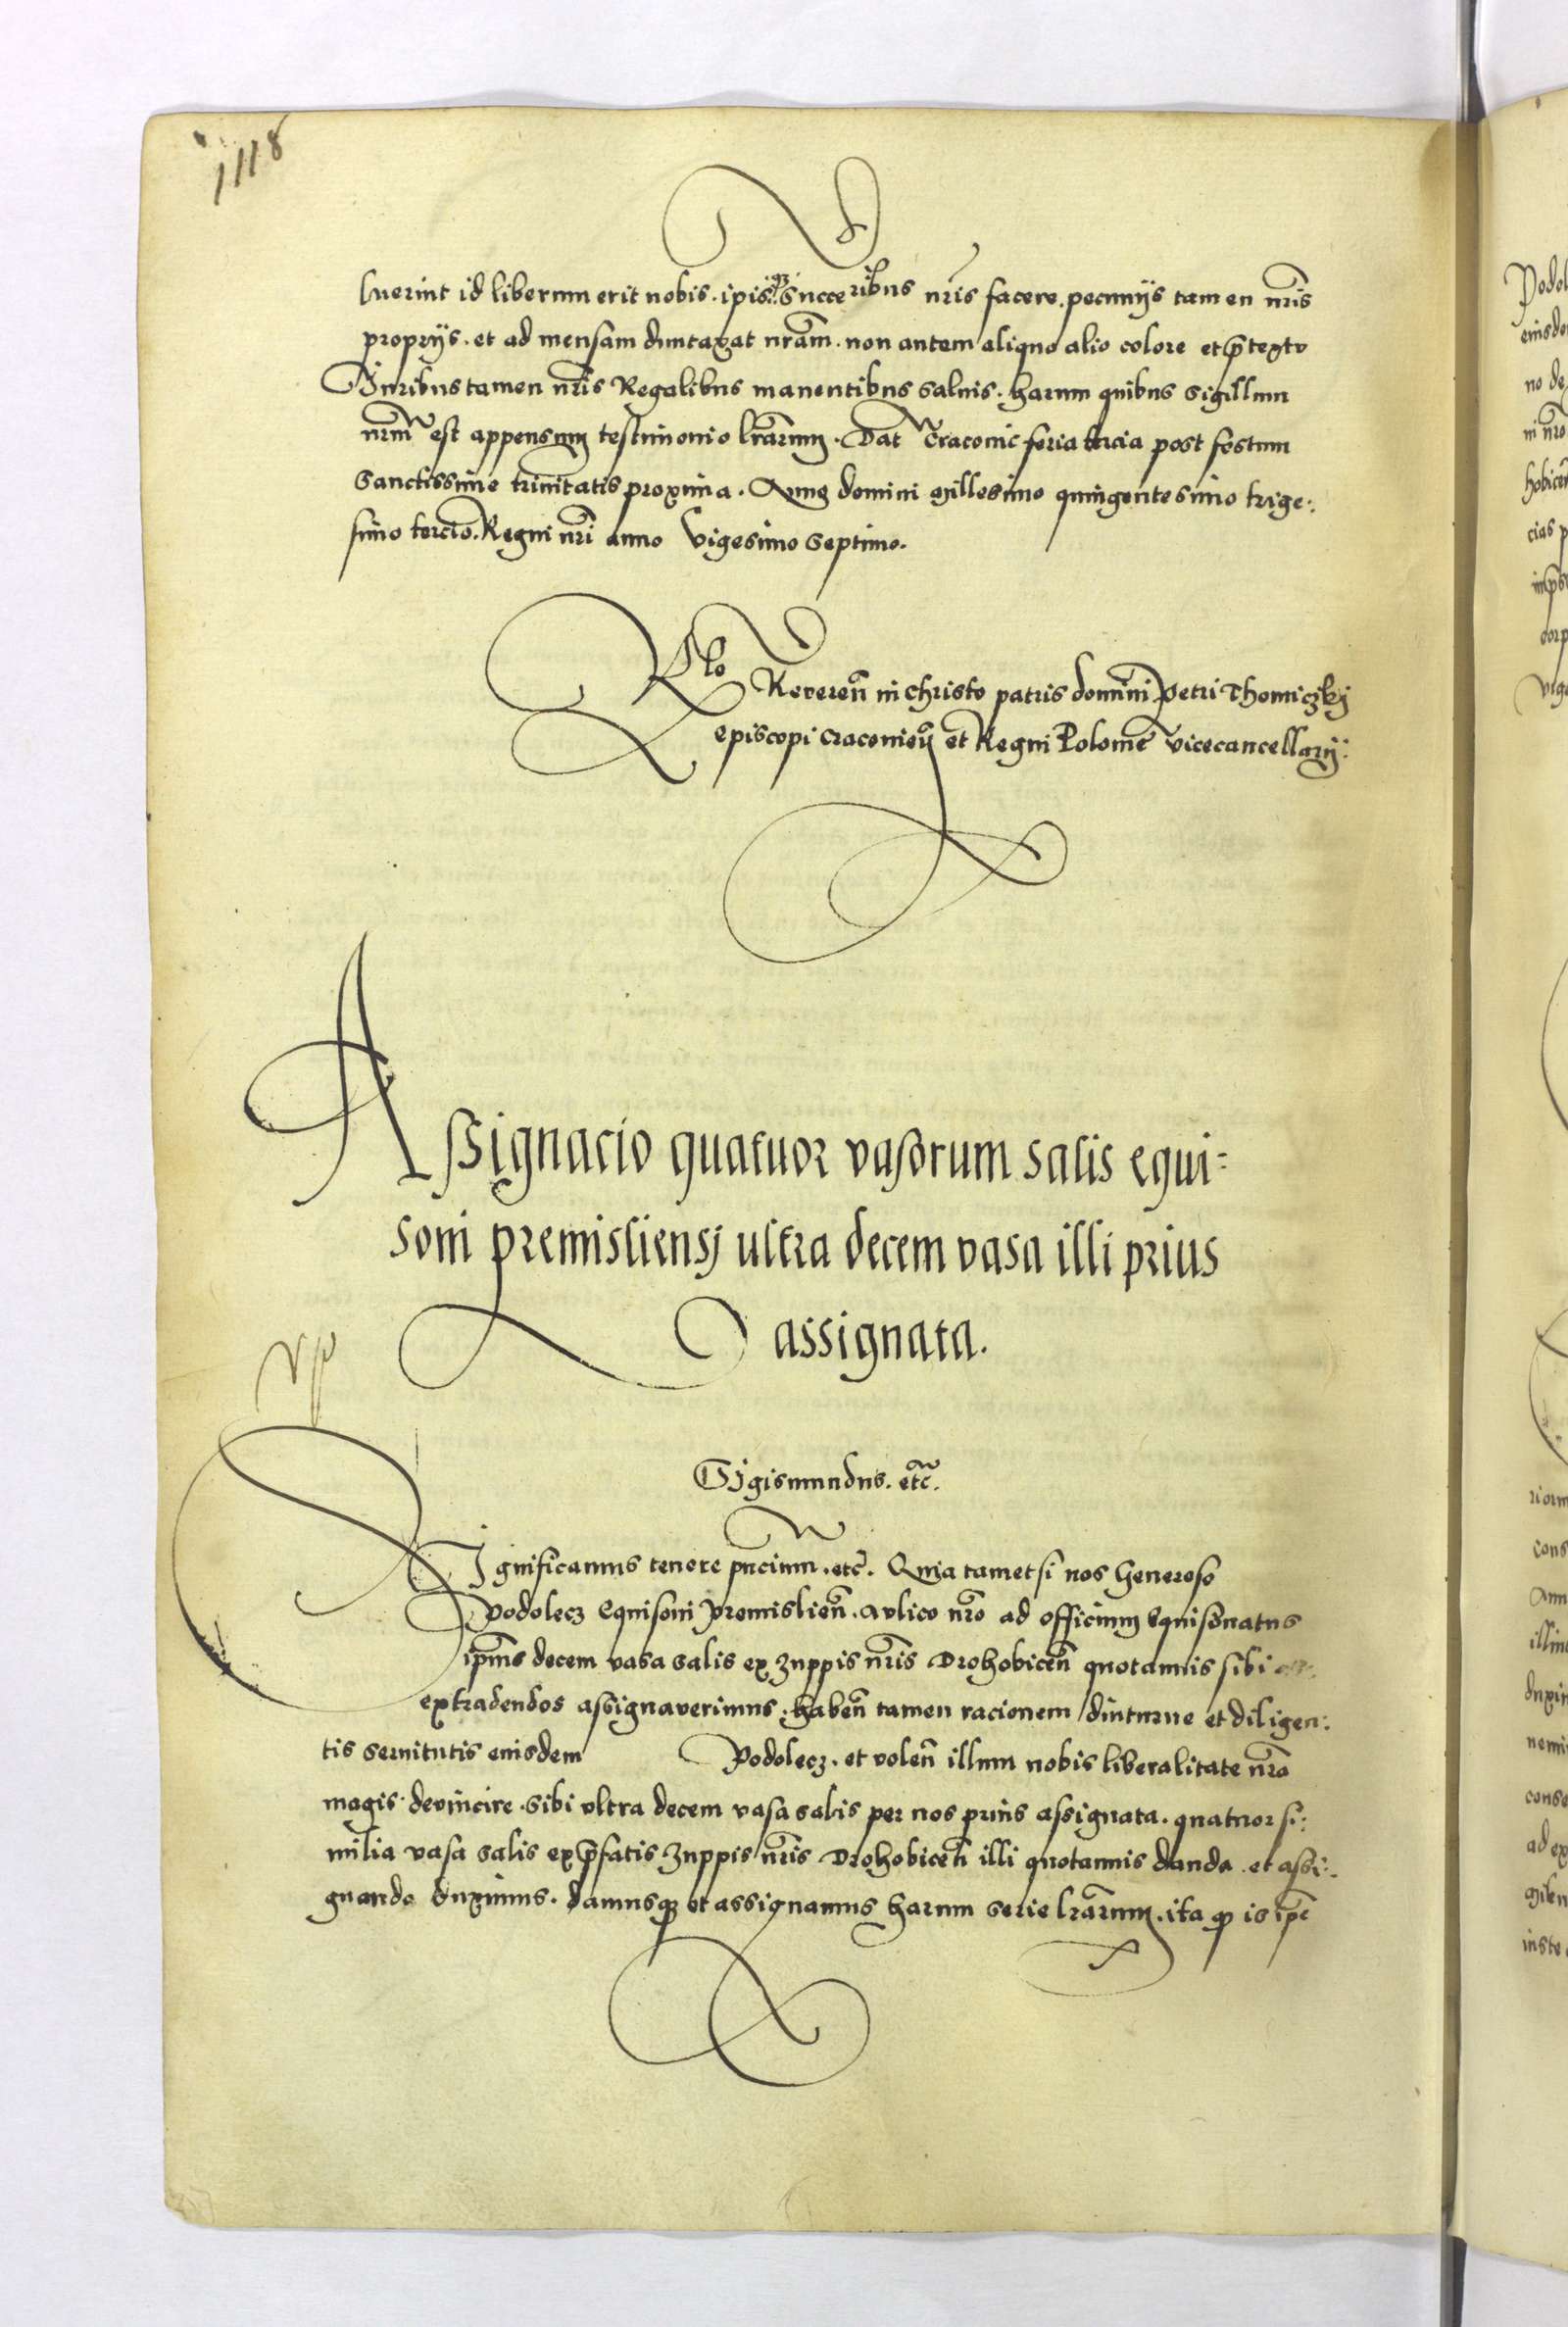 1118
luerint id liberum erit nobis. ipīsq₃ Succeribus nr̄is facere. pecunijs tamen nr̄is
proprijs. et ad mensam duntaxat nr̄am. non autem aliquo alio colore et p̄textu
Iuribus tamen nr̄is Regalibus manentibus saluis. harum quibus sigillum
nr̄m est appensum testimonio lr̄arum. Dat̄ Cracovie feria tercia post festum
Sanctissime trinitatis proxima. Anno domini Millesimo quingentesimo trige:
simo tercio. Regni nr̄i anno Vigesimo Septimo.
Rlo Reveren̄ in christo patris domini Petri Thomiczkij
Episcopi Cracovien̄ et Regni Polonie vicecancellarij:
Assignacio quatuor vasorum salis equi=
soni premisliensj ultra decem vasa illi prius
assignata.
Sigismundus. etc̄.
Significamus tenore pn̄cium. etc̄. Quia tametsi nos Generoso
Podolecz Equisoni Premislien̄. Aulico nr̄o ad officium Equisonatus
ip̄ius decem vasa salis ex zuppis nr̄is Drohobicen̄ quotannis sibi
extradendos assignaverimus. haben̄ tamen racionem diuturne et diligen:
tis seruitutis eiusdem Podolecz. et volen̄ illum nobis liberalitate nr̄a
magis devincire. sibi vltra decem vasa salis per nos prius assignata. quatuor si:
milia vasa salis ex p̄fatis zuppis nr̄is Drohobicen̄ illi quotannis danda et assi:
gnanda duximus. damusq₃ et assignamus harum serie lr̄arum. ita q₃ is ip̄e